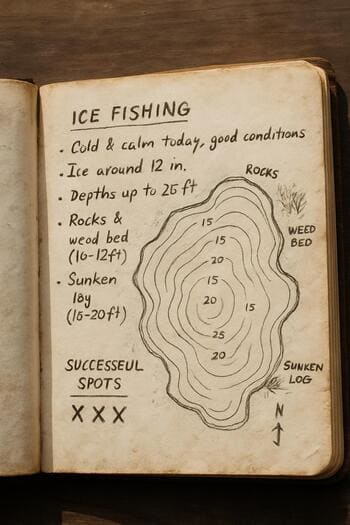 ICE FISHING
• Cold & calm today, good conditions
• Ice around 12 in.
• Depths up to 25 ft
• Rocks &
weod bed
(10-12ft)
• Sunken
18y
(15-20ft)
SUCCESSEUL
SPOTS
X X X
ROCKS
WEED
BED
15
15
20
15
20
15
25
20
SUNKEN
LOG
N